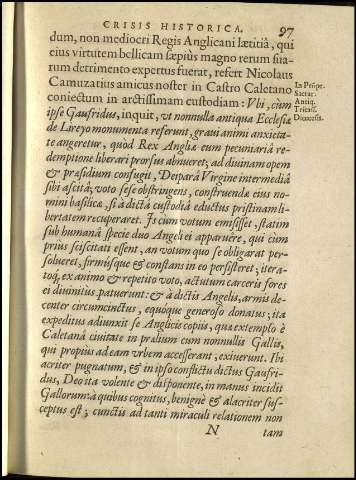 CRISIS HISTORICA. 97
dum, non mediocri Regis Anglicani lætitiâ, qui
eius virtutem bellicam sæpiùs magno rerum sua-
rum detrimento expertus fuerat, refert Nicolaus
Camuzatius amicus noster in Castro Caletano
coniectum in arctissimam custodiam: Vbi, cùm
ipse Gaufridus, inquit, vt nonnulla antiqua Ecclesiæ
de Lireyo monumenta referunt, graui animi anxieta-
te angeretur, quod Rex Angliæ eum pecuniariâ re-
demptione liberari prorsus abnueret; ad diuinam opem
& præsidium confugit, Deiparâ Virgine intermediâ
sibi ascitâ; voto sese obstringens, construendæ eius no-
mini basilicæ, si à dictâ custodiâ eductus pristinam li-
bertatem recuperaret. Is cùm votum emisisset, statim
sub humanâ specie duo Angeli ei apparuêre, qui cùm
priùs sciscitati essent, an votum quo se obligarat per-
solueret, firmúsque & constans in eo persisteret; itera-
toq; ex animo & repetito voto, actutum carceris fores
ei diuinitus patuerunt: & à dictis Angelis, armis de-
center circumcinctus, equóque generoso donatus; ita
expeditus adiunxit se Anglicis copiis, quæ extemplo è
Caletanâ ciuitate in prælium cum nonnullis Gallis,
qui propius ad eam vrbem accesserant, exiuerunt. Ibi
acriter pugnatum, & in ipso conflictu dictus Gaufri-
dus, Deo ita volente & disponente, in manus incidit
Gallorum: à quibus cognitus, benignè & alacriter sus-
ceptus est; cunctis ad tanti miraculi relationem non
N tam
In Prõpt.
Sacrar.
Antiq.
Tricass.
Diœcesis.